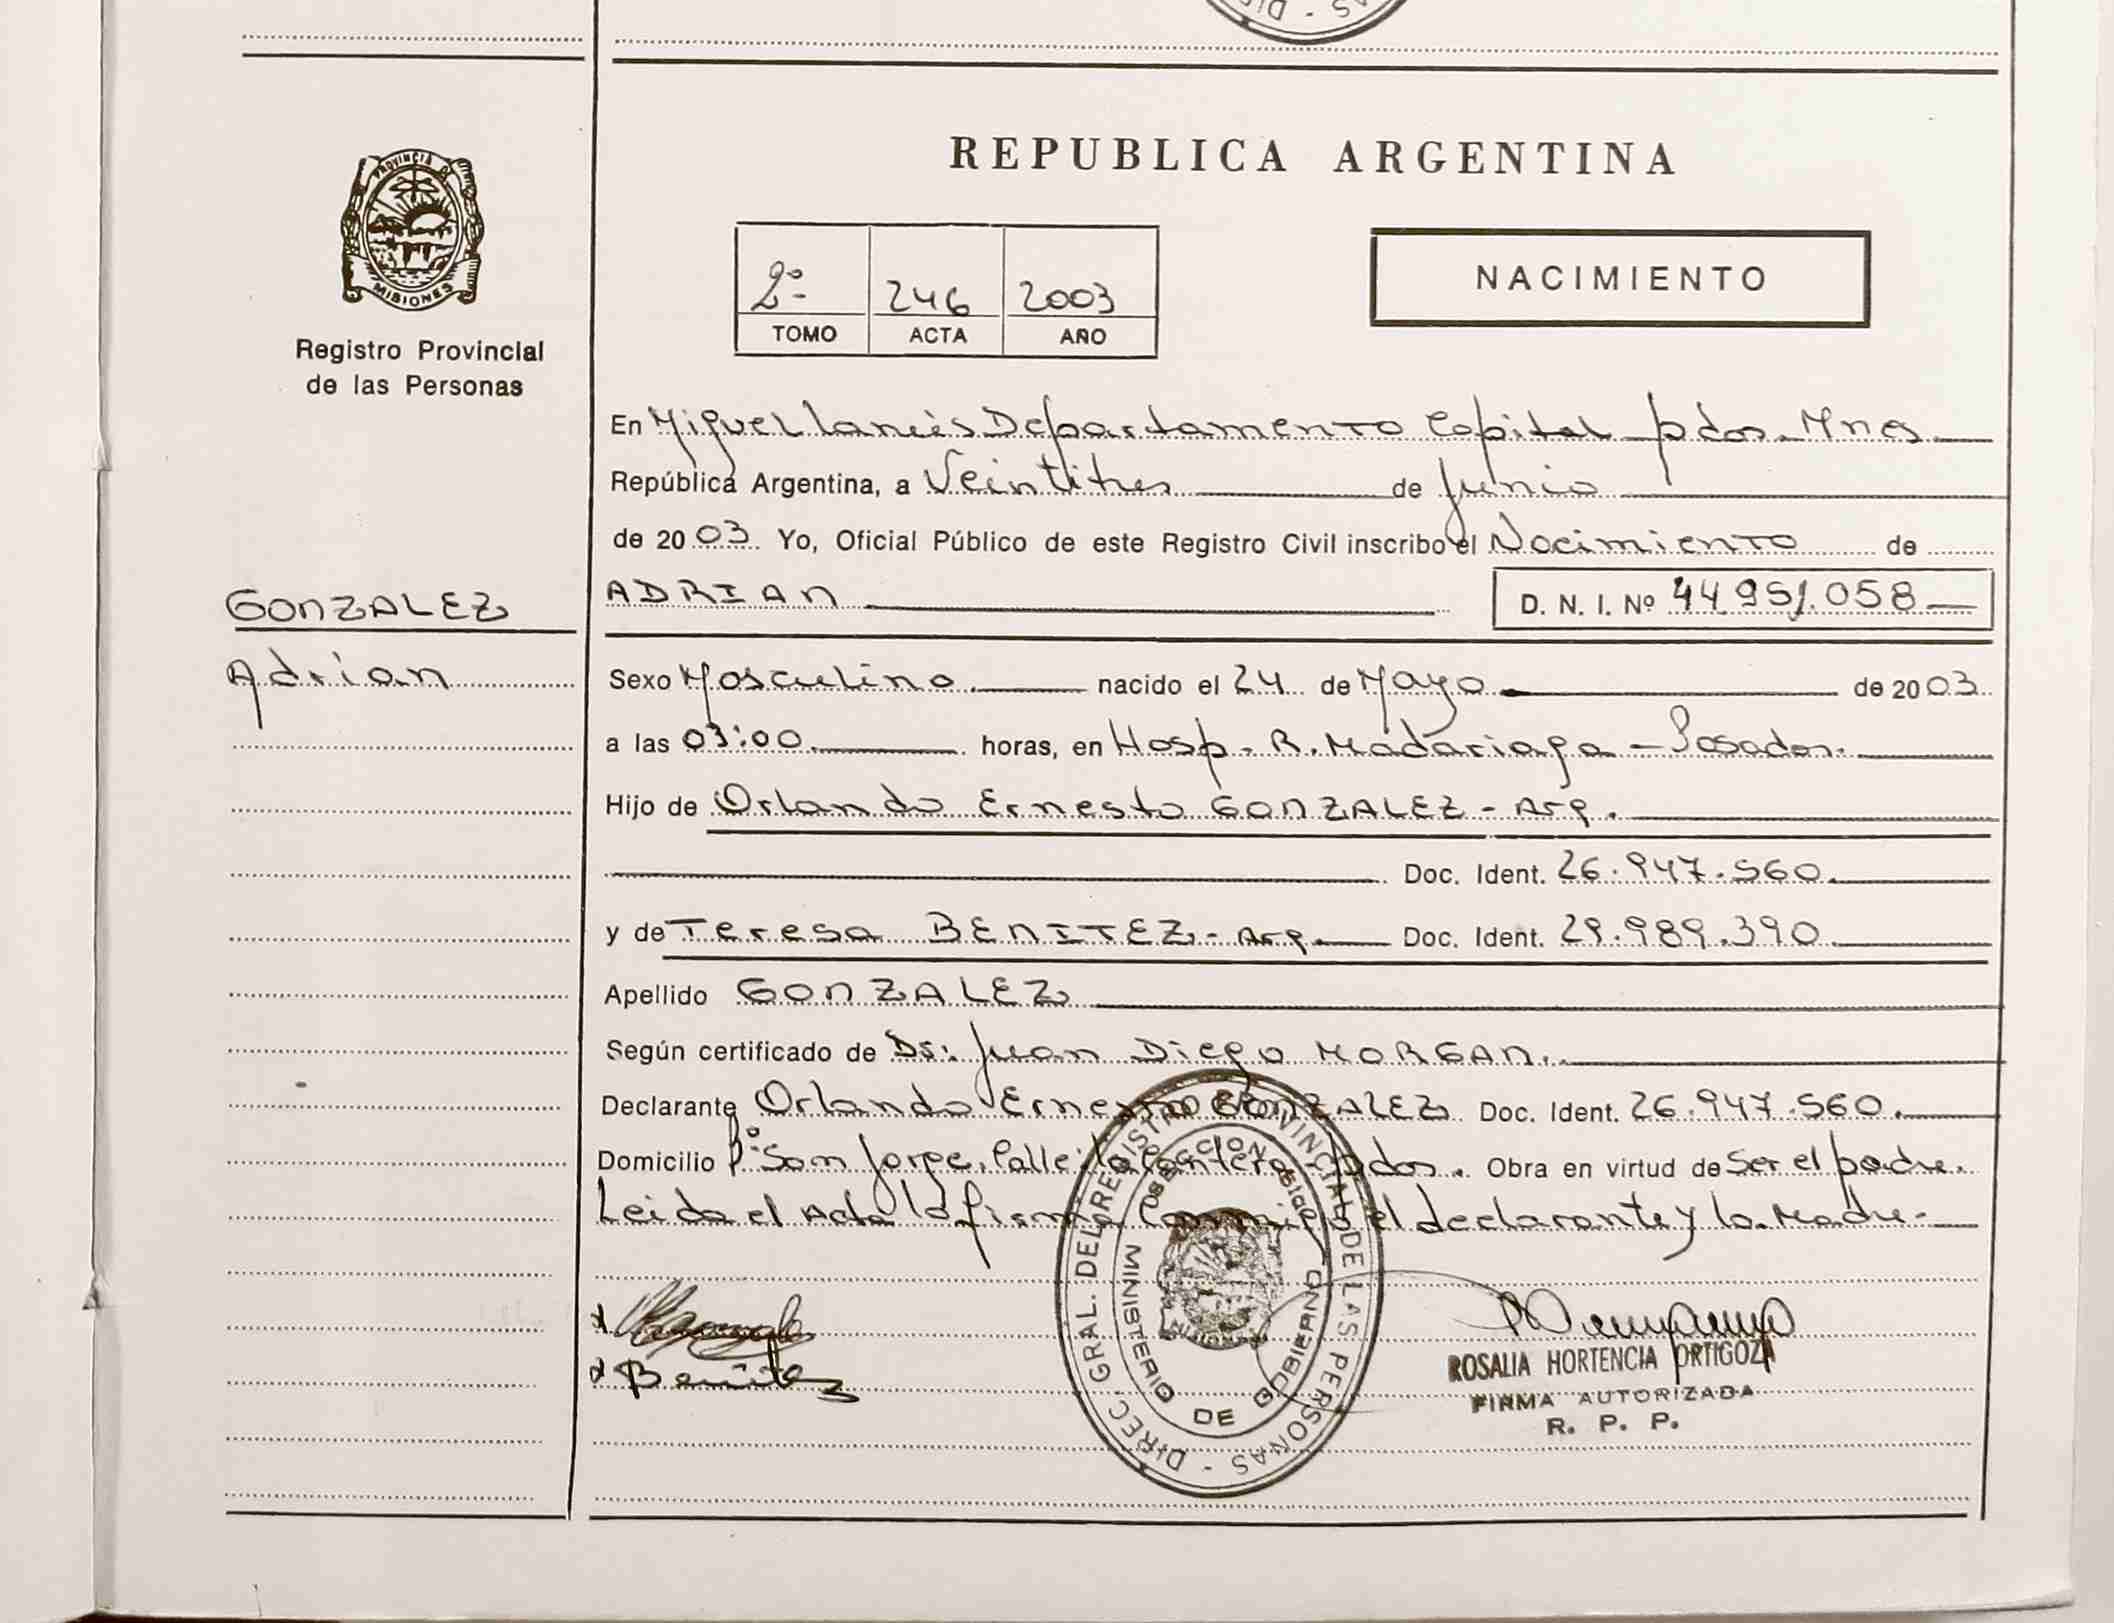 REPUBLICA ARGENTINA
PROVINCIA DE
MISIONES
Registro Provincial
de las Personas
2º 246 2003
TOMO ACTA AÑO
NACIMIENTO
En Miguel Lanús Departamento Capital pdas. Mnes
República Argentina, a Veintitres de Junio
de 2003. Yo, Oficial Público de este Registro Civil inscribo el Nacimiento de
GONZALEZ
ADRIAN D. N. I. Nº 44.951.058
Adrian
Sexo Masculino nacido el 24 de Mayo de 2003
a las 03:00 horas, en Hosp. R. Madariaga - Posadas.
Hijo de Orlando Ernesto GONZALEZ - Arg.
Doc. Ident. 26.947.560
y de Teresa BENITEZ - Arg. Doc. Ident. 29.989.390
Apellido GONZALEZ
Según certificado de Dr. Juan Diego MORGAN.
Declarante Orlando Ernesto GONZALEZ Doc. Ident. 26.947.560.
Domicilio Bº San Jorge, Calle la Cantera - Pdas. Obra en virtud de Ser el padre.
Leida el Acta la firma Conmigo el declarante y la Madre -
DIREC. GRAL. DEL REGISTRO PROVINCIAL DE LAS PERSONAS
MINISTERIO DE GOBIERNO
Benitez
ROSALIA HORTENCIA ORTIGOZA
FIRMA AUTORIZADA
R. P. P.